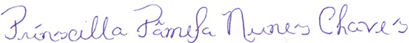 Prinscilla Pâmela Nunes Chaves